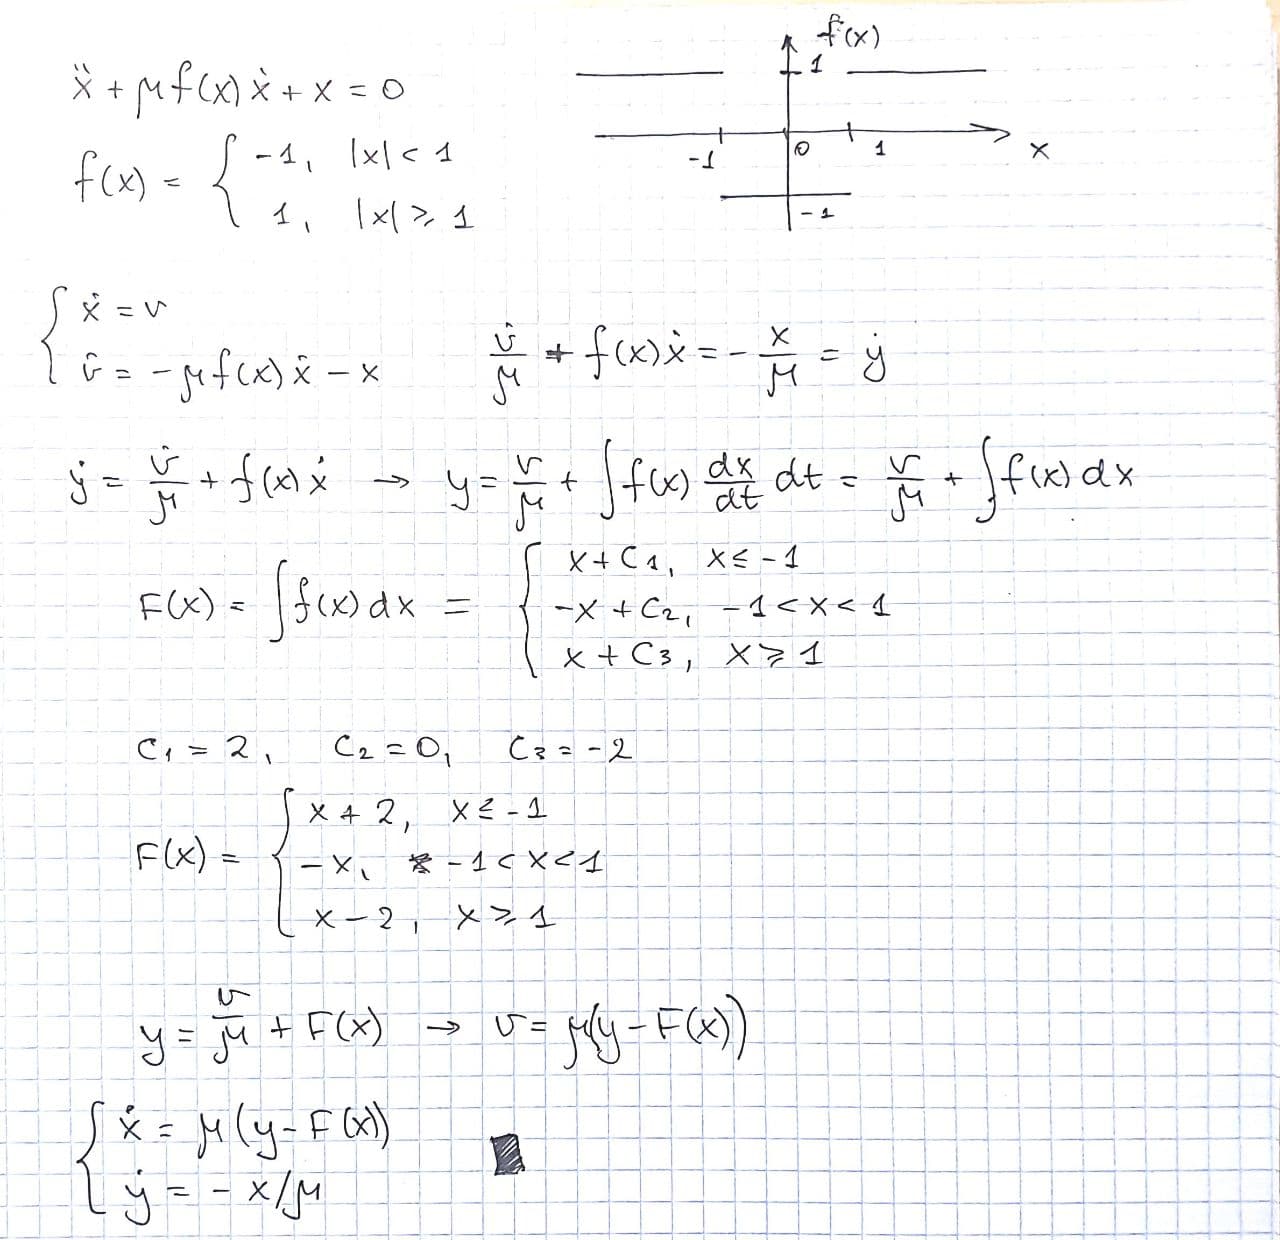 ẍ + μf(x)ẋ + x = 0
f(x) = { -1, |x| < 1
1, |x| ⩾ 1
f(x)
1
-1 0 1 x
-1
{ ẋ = v
v̇ = -μf(x)ẋ - x
v̇/μ + f(x)ẋ = -x/μ = ẏ
ẏ = v̇/μ + f(x)ẋ → y = v/μ + ∫f(x) dx/dt dt = v/μ + ∫f(x)dx
F(x) = ∫f(x)dx = { x + C1, x ⩽ -1
-x + C2, -1 < x < 1
x + C3, x ⩾ 1
C1 = 2, C2 = 0, C3 = -2
F(x) = { x + 2, x ⩽ -1
-x, -1 < x < 1
x - 2, x ⩾ 1
y = v/μ + F(x) → v = μ(y - F(x))
{ ẋ = μ(y - F(x))
ẏ = - x/μ